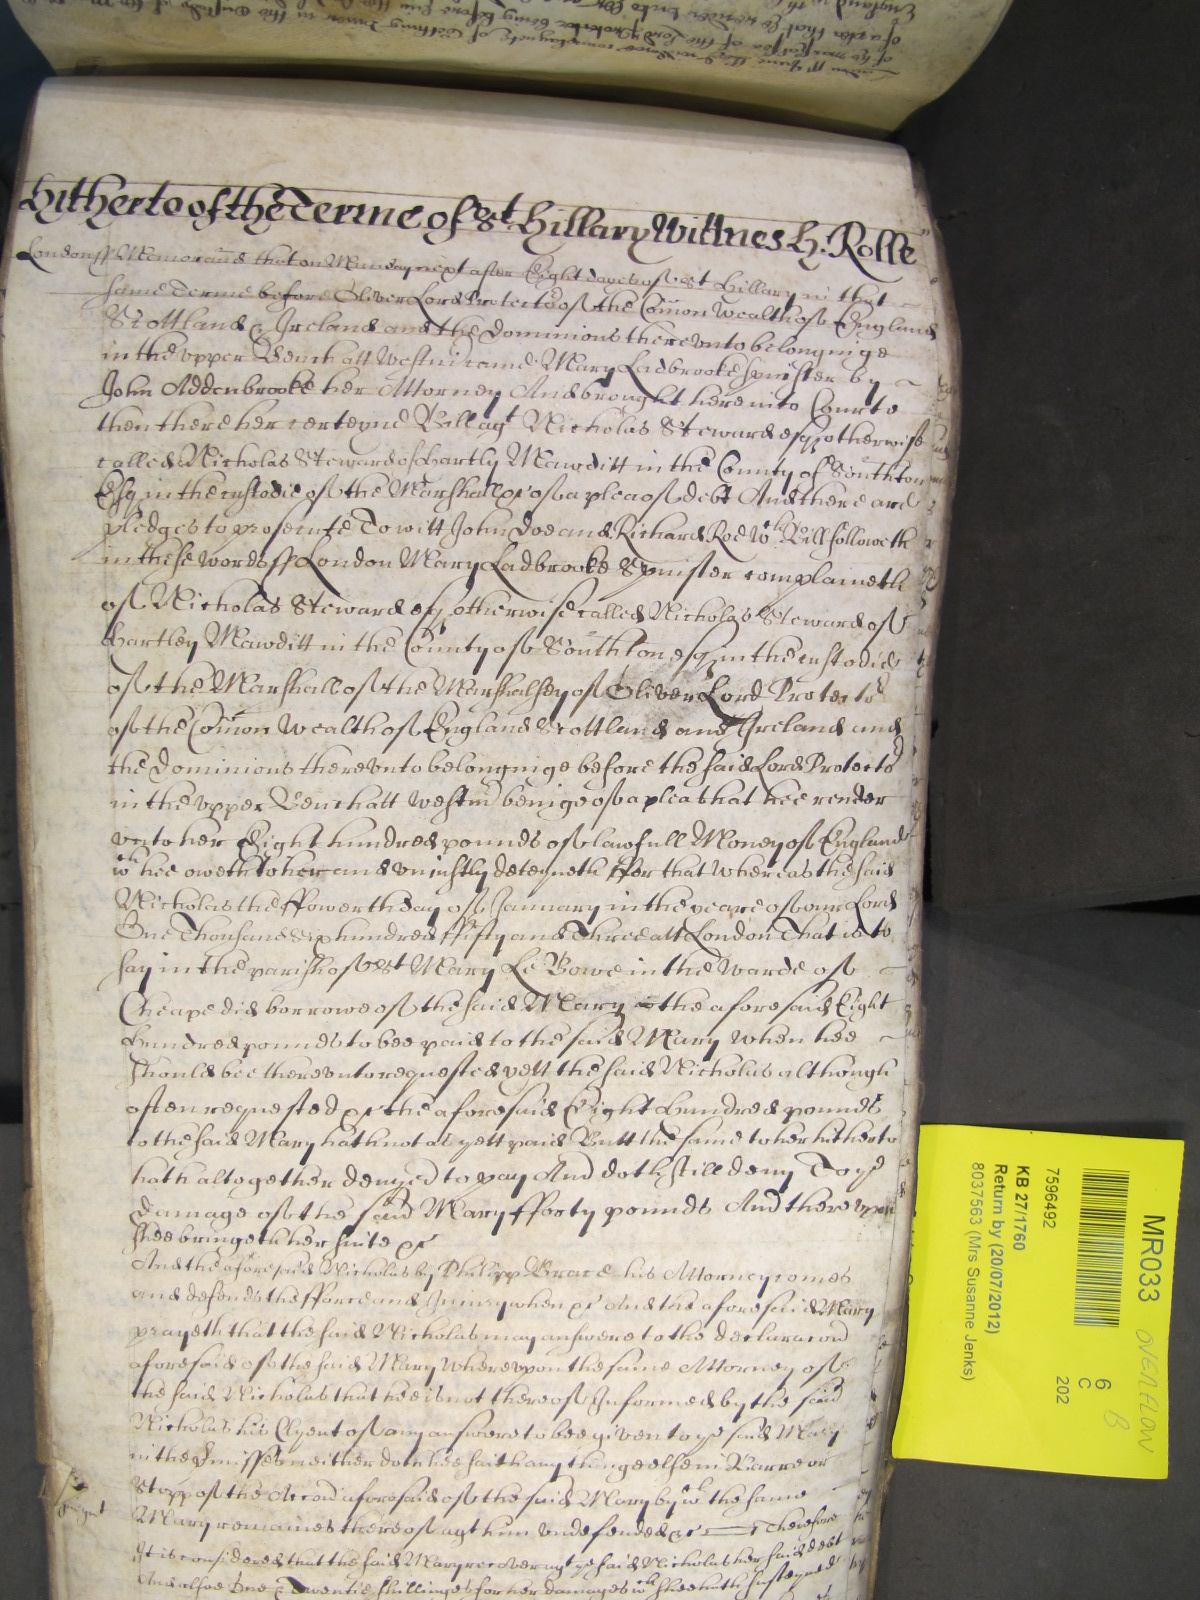 Hitherto of the Terme of St. Hillary Wittnes H: Rolle
London ss Memorand that on Munday next after Eight dayes of St Hillary in that
same Terme before Oliver Lord Protector of the Comon Wealth of England
Scottland & Ireland and the Dominions thereunto belonginge
in the upper Bench att Westm came Mary Ladbrooke Spinster by
John Addenbrooke her Attorney And brought here into Court
then there her certeyne Bill agt Nicholas Steward esq otherwise
called Nicholas Steward of Hartly Mawditt in the County of Southton
Esq in the custodie of the Marshall &c of a plea of debt And there are
pledges to prosecute To witt John Doe and Richard Roe wch Bill followeth
in these words ss London Mary Ladbrooke Spinster complaineth
of Nicholas Steward esq otherwise called Nicholas Steward of
Hartley Mawditt in the County of Southton esq in the custodie
of the Marshall of the Marshalsey of Oliver Lord Protector
of the Comon Wealth of England Scottland and Ireland and
the Dominions thereunto belonginge before the said Lord Protector
in the upper Bench att Westm beinge of a plea that hee render
unto her Eight hundred pounds of lawfull Money of England
wch hee oweth to her and uniustly deteyneth ffor that whereas the said
Nicholas the ffowerth day of January in the yeare of our Lord
One Thousand Six hundred ffifty and Three att London That is to
say in the parish of St Mary Le Bowe in the Warde of
Cheape did borrowe of the said Mary the aforesaid Eight
hundred pounds to bee paid to the said Mary when hee
should bee thereunto requested yett the said Nicholas although
often requested &c the aforesaid Eight hundred pounds
to the said Mary hath not as yett paid Butt the same to her hitherto
hath altogether denyed to pay And doth still deny To ye
damage of the said Mary fforty pounds And thereupon
shee bringeth her suite &c
And the aforesaid Nicholas by Phillipp Brace his Attorney comes
and defends the fforce and Iniury when &c And the aforesaid Mary
prayeth that the said Nicholas may answere to the declaracon
aforesaid of the said Mary whereupon the same Attorney of
the said Nicholas that hee is not thereof Informed by the said
Nicholas his Clyent of any answere to bee given to ye said Mary
in the Pmisses neither doth hee saith any thinge else in Barre or
Stopp of the Accon aforesaid of the said Mary by wch the same
Mary remaines thereof agt him undefended &c Therefore
It is considered that the said Mary recover agt ye said Nicholas her said debt
And alsoe One & Twentie shillinges for her damages wch shee hath susteyned
MR033
OVERFLOW
B
6
C
202
7596492
KB 27/1760
Return by (20/07/2012)
8037563 (Mrs Susanne Jenks)